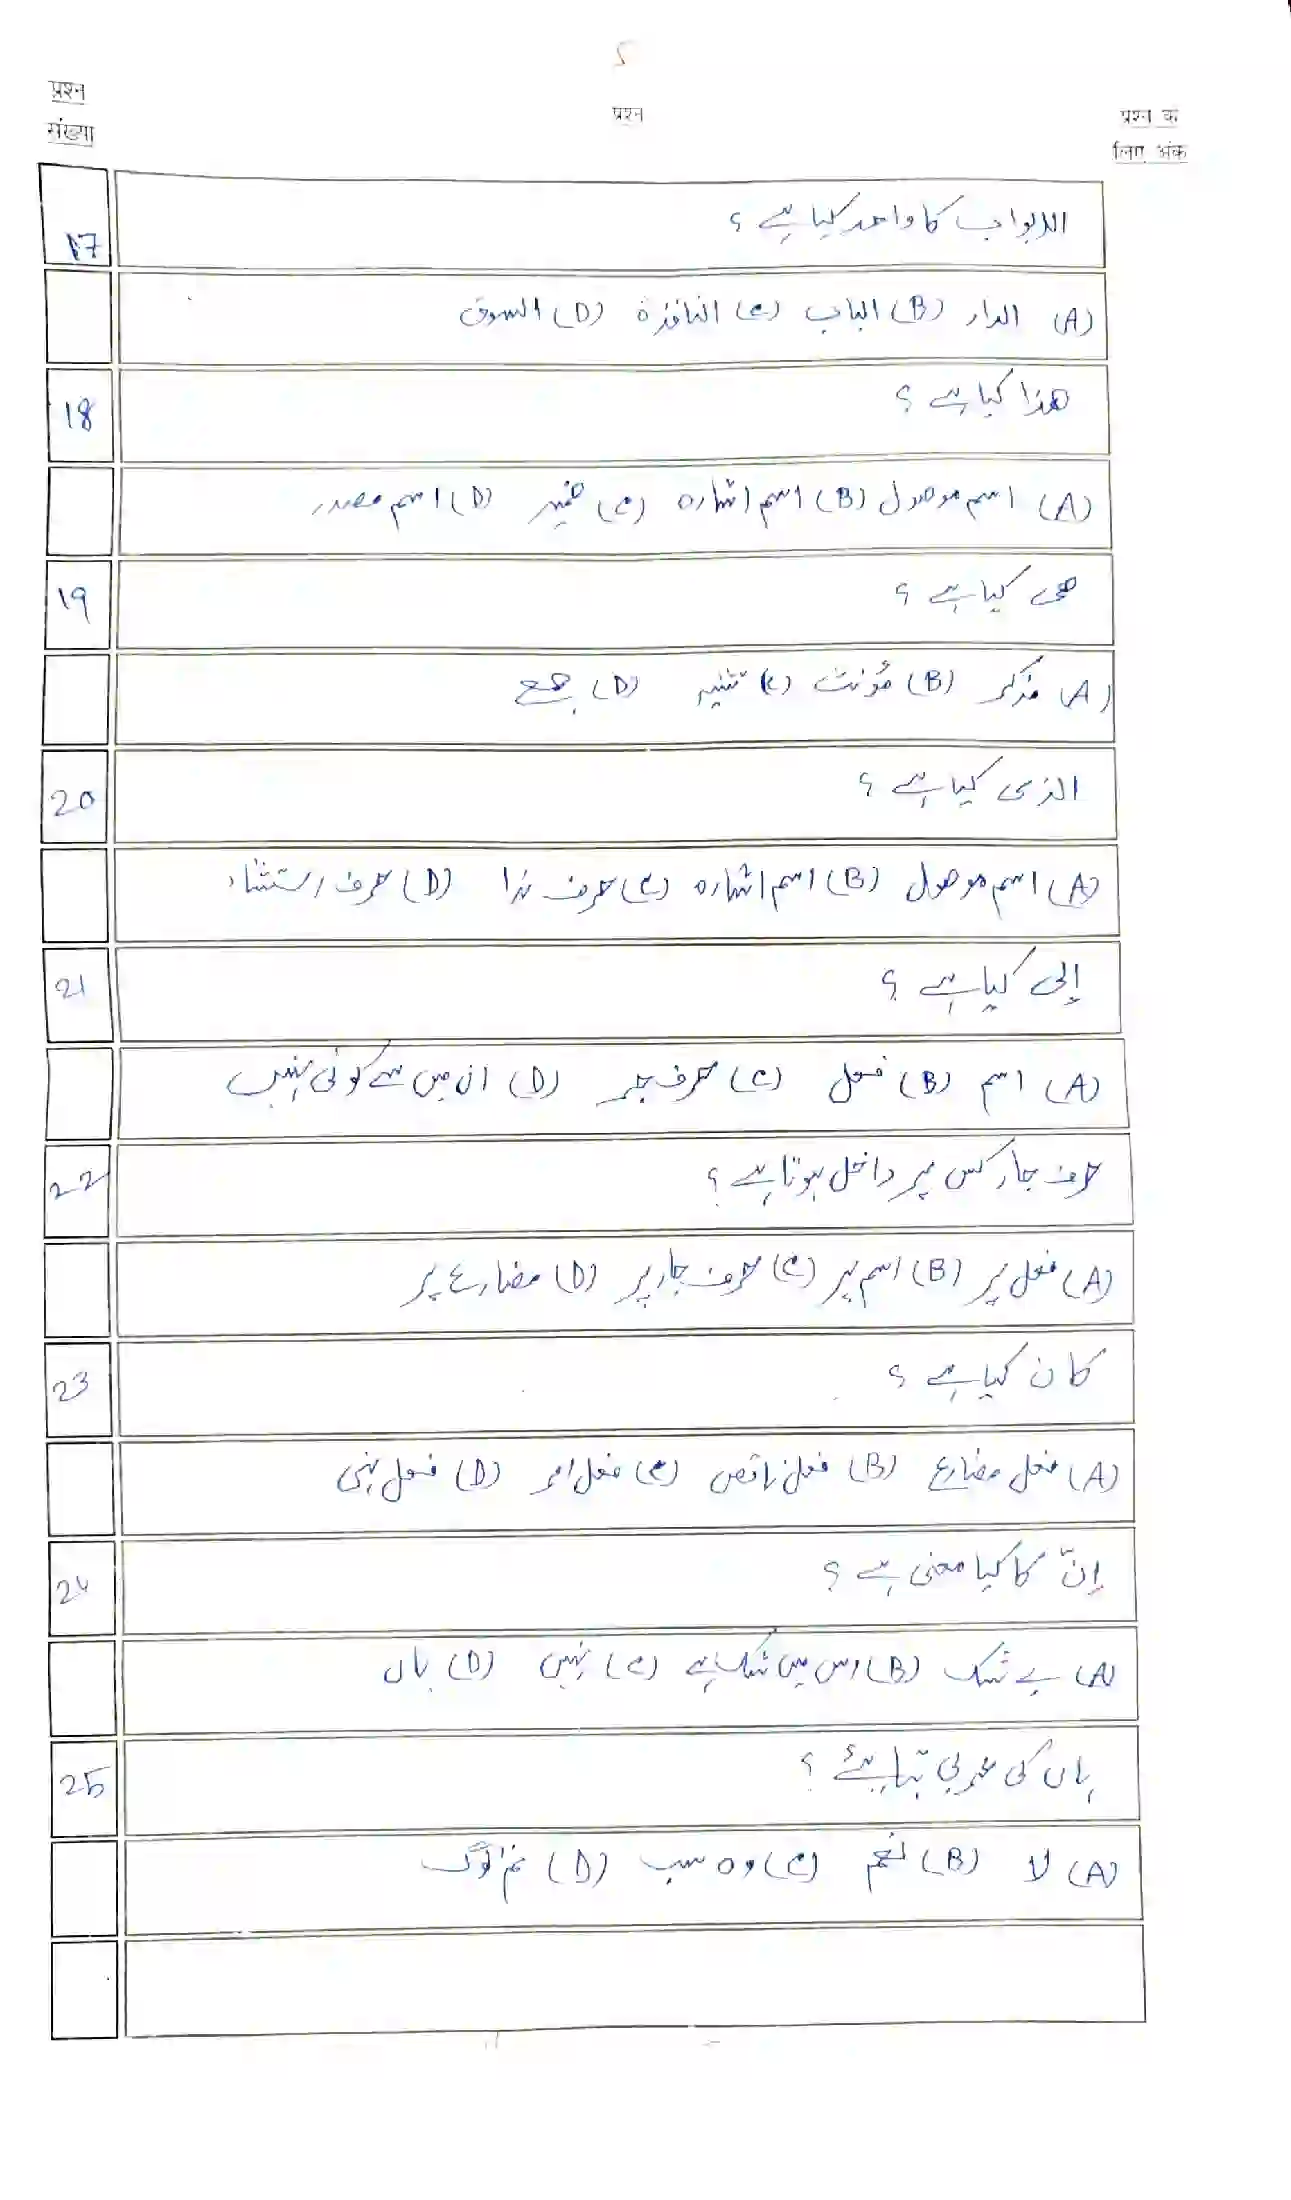 प्रश्न
संख्या
प्रश्न
प्रश्न क
लिए अंक
17
الابواب کا واحد کیا ہے ؟
(A) الدار (B) الباب (C) النافذة (D) السوق
18
ھذا کیا ہے ؟
(A) اسم موصول (B) اسم اشارہ (C) ضمیر (D) اسم مصدر
19
ھی کیا ہے ؟
(A) مذکر (B) مؤنث (C) تثنیہ (D) جمع
20
الذی کیا ہے ؟
(A) اسم موصول (B) اسم اشارہ (C) حرف ندا (D) حرف استثناء
21
إلی کیا ہے ؟
(A) اسم (B) فعل (C) حرف جر (D) ان میں سے کوئی نہیں
22
حرف جار کس پر داخل ہوتا ہے ؟
(A) فعل پر (B) اسم پر (C) حرف جار پر (D) مضارع پر
23
کان کیا ہے ؟
(A) فعل مضارع (B) فعل ناقص (C) فعل امر (D) فعل نہی
24
إنّ کا کیا معنی ہے ؟
(A) بے شک (B) اس میں شک ہے (C) نہیں (D) ہاں
25
ہاں کی عربی بتایئے ؟
(A) لا (B) نعم (C) وہ سب (D) تم لوگ